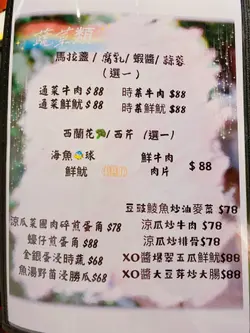 蔬菜類
馬拉盞/腐乳/蝦醬/蒜蓉
(選一)
通菜牛肉$88 時菜牛肉$88
通菜鮮魷$88 時菜鮮魷$88
西蘭花/西芹 (選一)
海魚球 鮮牛肉
鮮魷 肉片 $88
豆豉鯪魚炒油麥菜$78
涼瓜菜圃肉碎煎蛋角$78 涼瓜炒牛肉$78
蠔仔煎蛋角$88 涼瓜炒排骨$78
金銀蛋浸時蔬$68 XO醬爆翠玉瓜鮮魷$88
魚湯野首浸勝瓜$68 XO醬大豆芽炒大腸$88